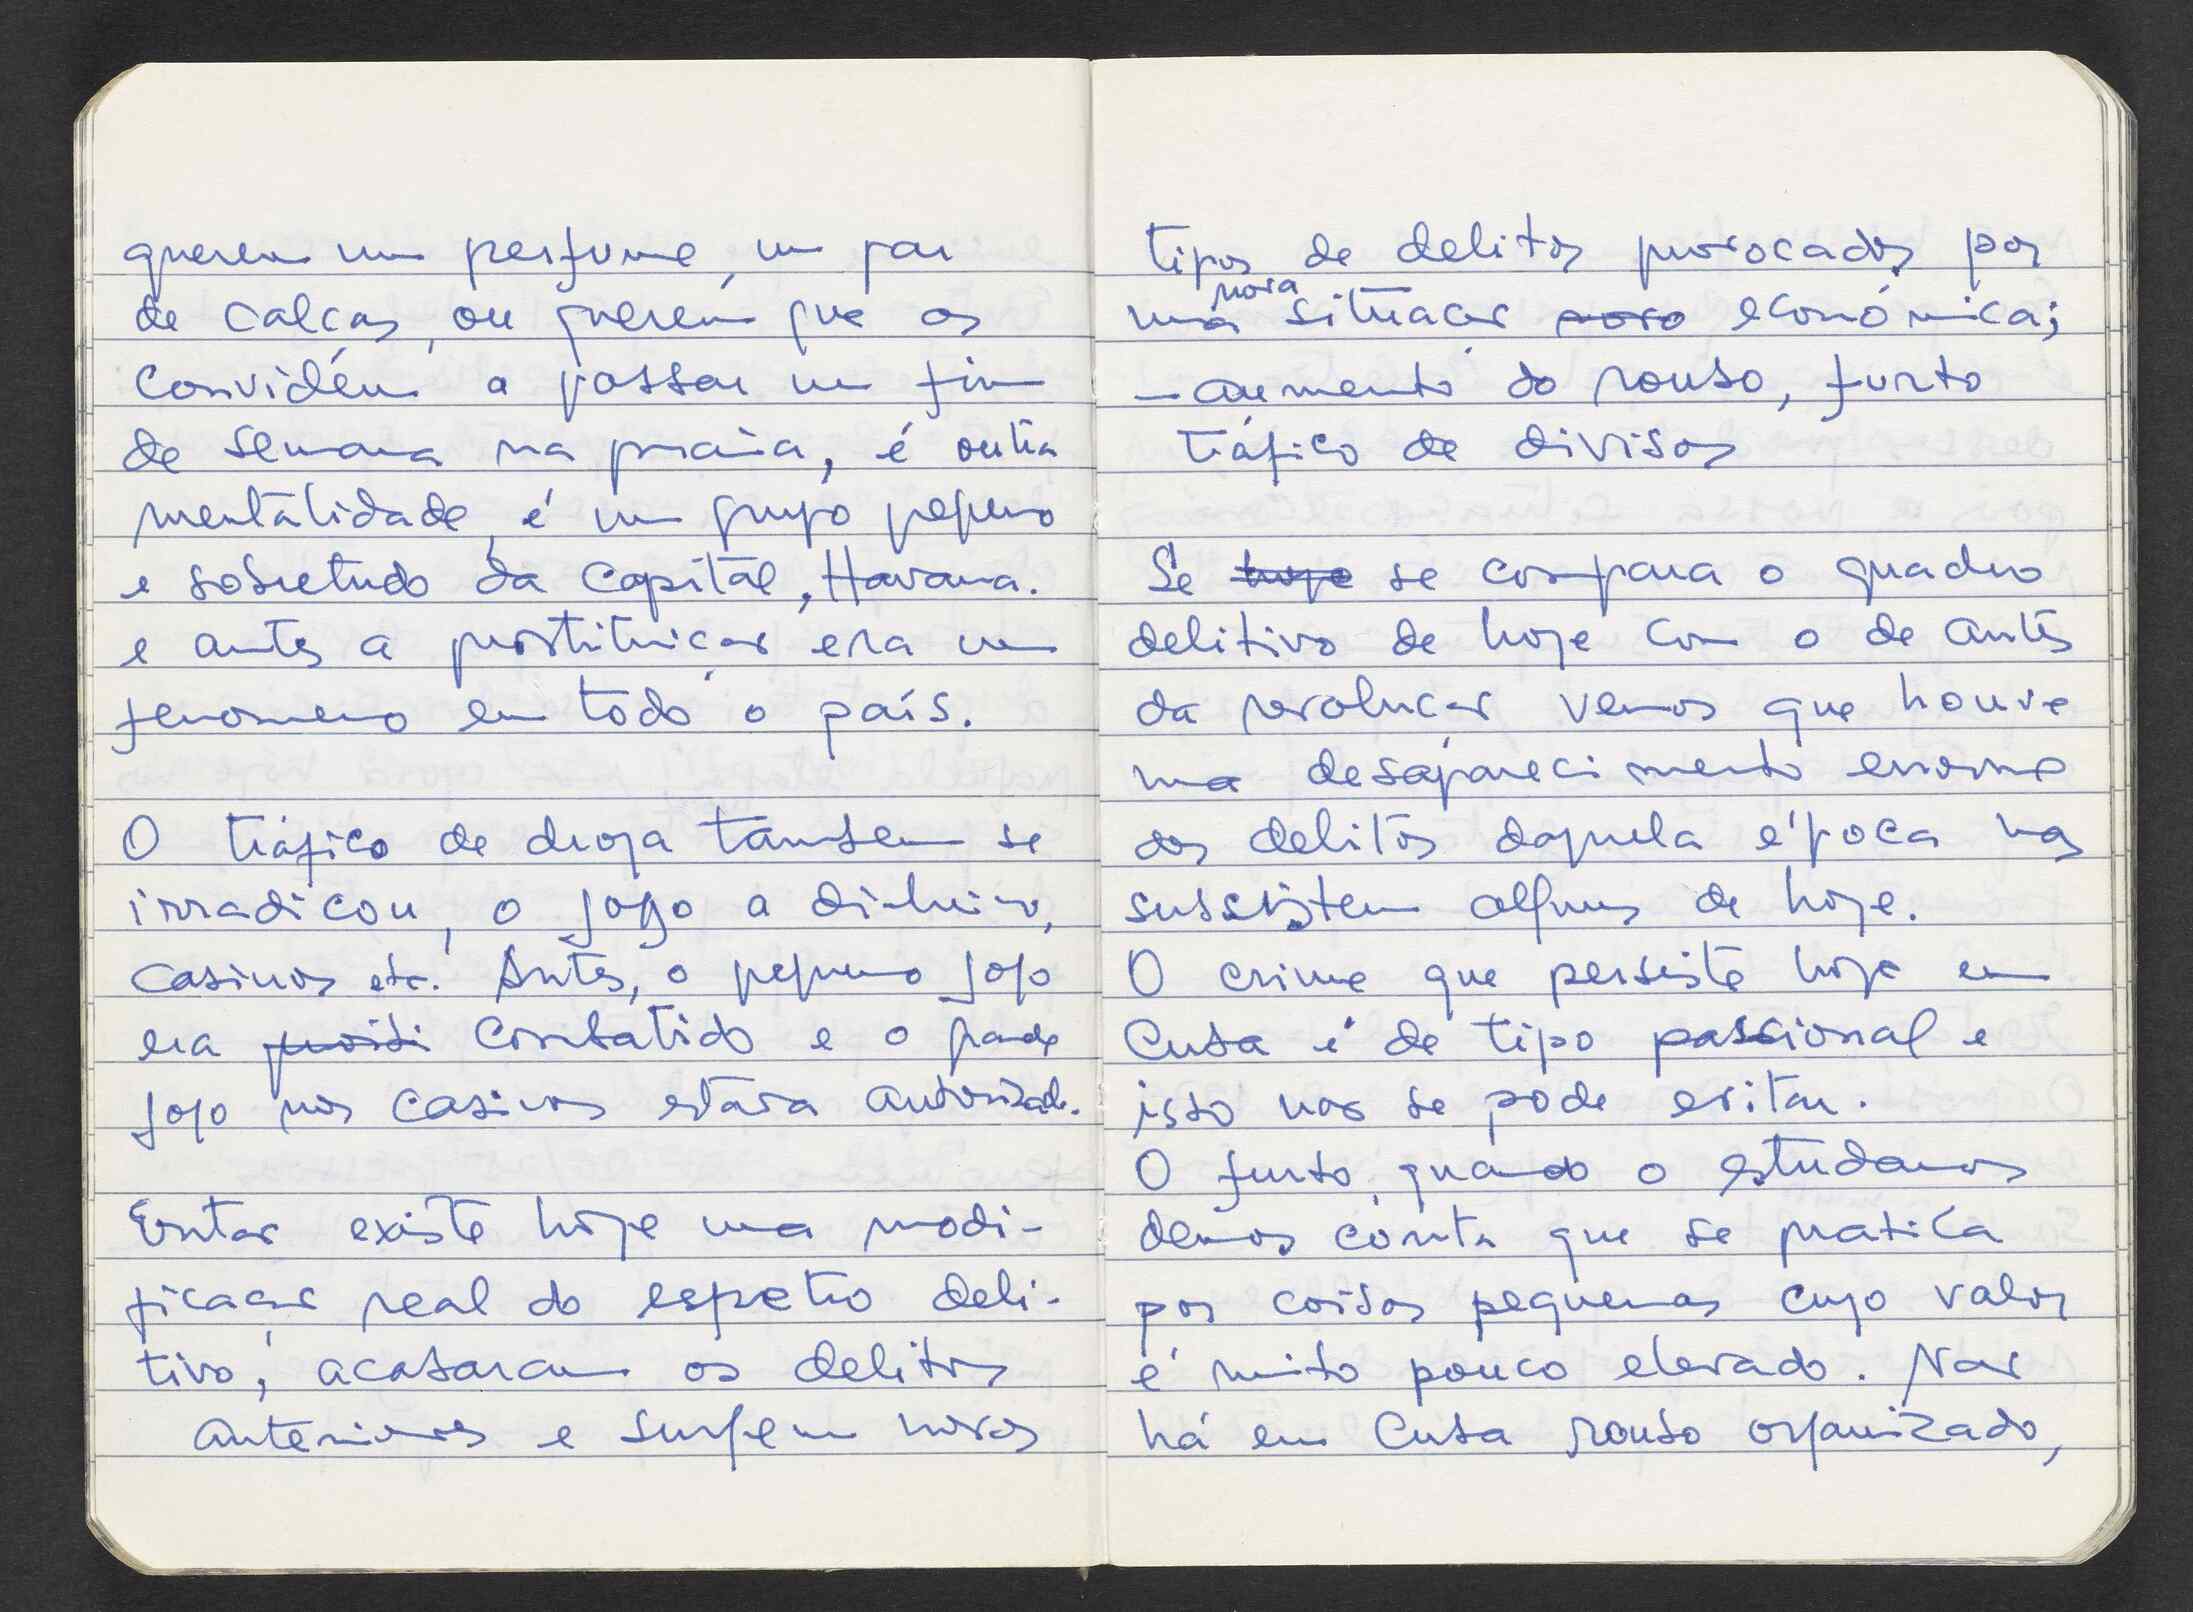 querem um perfume, um par
de calças, ou querem que os
convidém a passar um fim
de semana na praia, é outra
mentalidade, é um grupo pequeno
e sobretudo da capital, Havana.
e antes a prostituição era um
fenomeno em todo o país.
O tráfico de droga tambem se
irradicou, o jogo a dinheiro,
casinos etc. Antes, o pequeno jogo
era proibi combatido e o grande
jogo nos casinos estava autorizado.
Então existe hoje uma modi-
ficação real do espetro deli-
tivo, acabaram os delitos
anteriores e surgem novos
tipos de delitos provocados por
nova
uma situação novo económica;
- aumento do roubo, furto
tráfico de divisas
Se hoje se compara o quadro
delitivo de hoje com o de antes
da revolução vemos que houve
um desaparecimento enorme
dos delitos daquela época nos
subsistem alguns de hoje.
O crime que persiste hoje em
Cuba é de tipo passional e
isso nao se pode evitar.
O furto, quando o estudamos
demos conta que se pratica
por coisas pequenas cujo valor
é muito pouco elevado. Nao
há em Cuba roubo organizado,